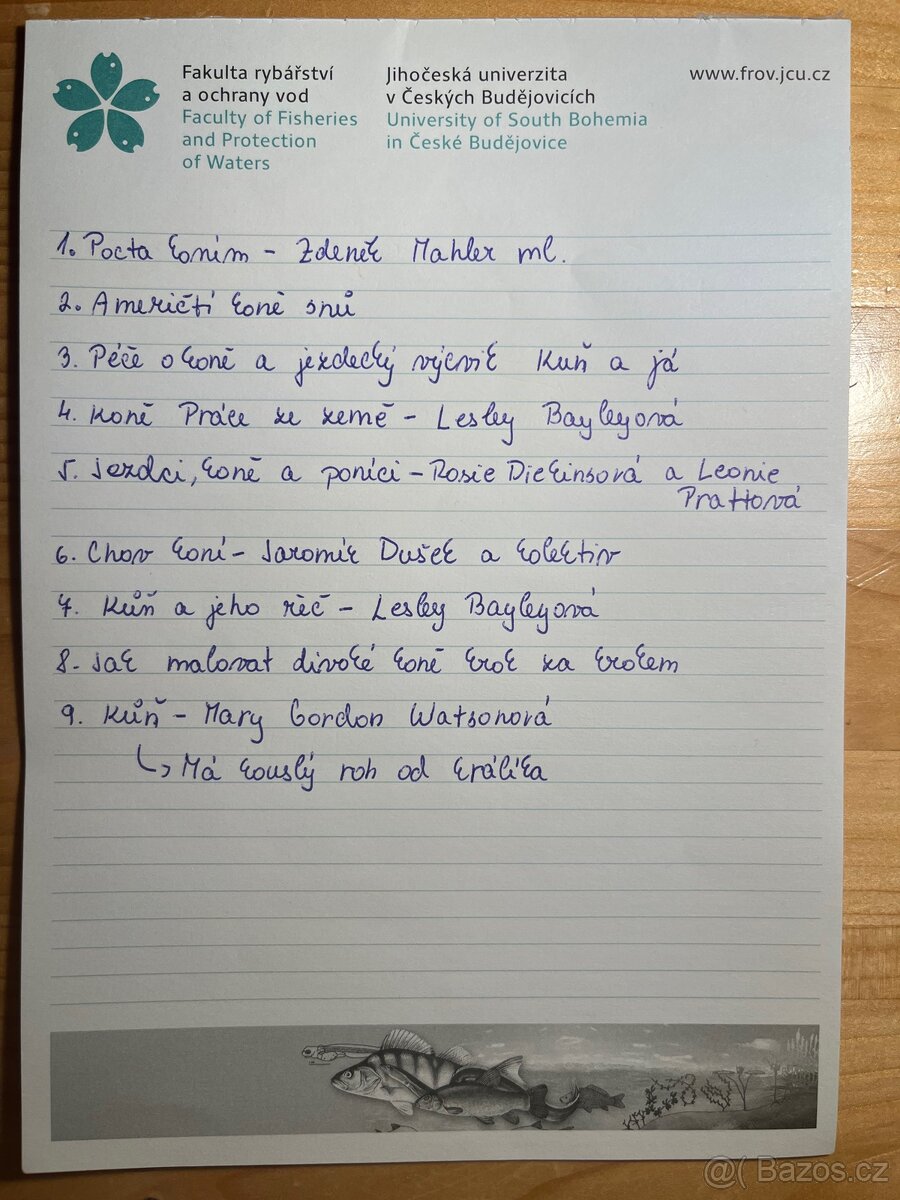 Fakulta rybářství
a ochrany vod
Faculty of Fisheries
and Protection
of Waters
Jihočeská univerzita
v Českých Budějovicích
University of South Bohemia
in České Budějovice
www.frov.jcu.cz
1. Pocta koním - Zdeněk Mahler ml.
2. Američtí koně snů
3. Péče o koně a jezdecký výcvik Kuň a já
4. Koně Práce ze země - Lesley Bayleyová
5. Jezdci, koně a poníci - Rosie Dickinsová a Leonie
Prattová
6. Chov koní - Jaromír Dušek a kolektiv
7. Kůň a jeho řeč - Lesley Bayleyová
8. Jak malovat divoké koně krok za krokem
9. Kůň - Mary Gordon Watsonová
↳ Má kouslý roh od králíka
@( Bazos.cz